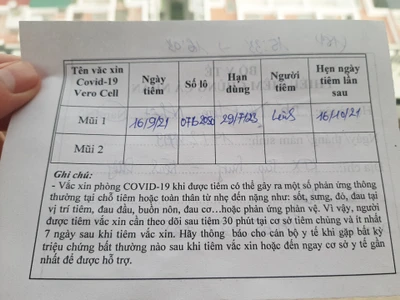 Tên vắc xin Covid-19 Vero Cell | Ngày tiêm | Số lô | Hạn dùng | Người tiêm | Hẹn ngày tiêm lần sau
Mũi 1 | 16/9/21 | 29/7/23 | 16/10/21
Mũi 2
Ghi chú:
- Vắc xin phòng COVID-19 khi được tiêm có thể gây ra một số phản ứng thông
thường tại chỗ tiêm hoặc toàn thân từ nhẹ đến nặng như: sốt, sưng, đỏ, đau tại
vị trí tiêm, đau đầu, buồn nôn, đau cơ...hoặc phản ứng phản vệ. Vì vậy, người
được tiêm vắc xin cần theo dõi sau tiêm 30 phút tại cơ sở tiêm chủng và ít nhất
7 ngày sau khi tiêm vắc xin. Hãy thông báo cho cán bộ y tế khi gặp bất kỳ
triệu chứng bất thường nào sau khi tiêm vắc xin hoặc đến ngay cơ sở y tế gần
nhất để được hỗ trợ.